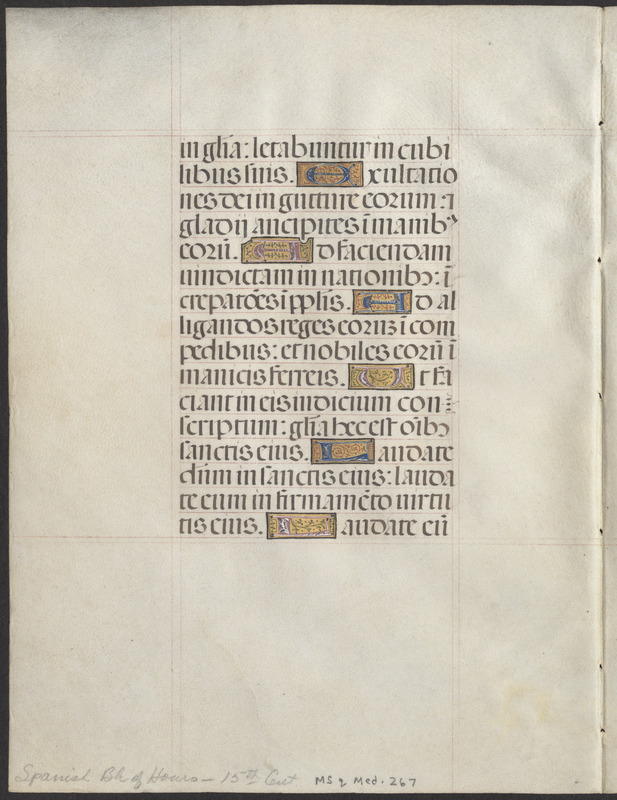 in gl̃ia: letabuntur in cubi
libus suis. Exultatio
nes dei in gutture eorum: ⁊
gladij ancipites ĩ manibꝰ
eorũ. Ad faciendam
uindictam in nationibꝫ: ĩ
crepatões ĩ ppl̃is. Ad al
ligandos reges eorũ ĩ com
pedibus: et nobiles eorũ ĩ
manicis ferreis. Ut fa
ciant in eis iudicium con
scriptum: gl̃ia hec est oĩbꝫ
sanctis eius. Laudate
dñm in sanctis eius: lauda
te eum in firmamẽto uirtu
tis eius. Laudate eũ
Spanish Bk of Hours – 15th Cent MS q Med. 267